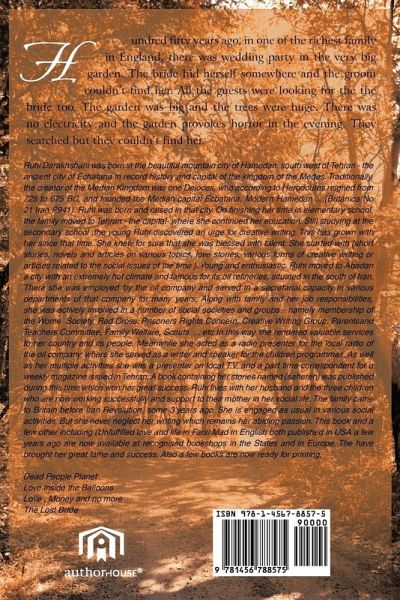 Hundred fifty years ago, in one of the richest family
in England, there was wedding party in the very big
garden. The bride hid herself somewhere and the groom
couldn't find her. All the guests were looking for the the
bride too. The garden was big and the trees were huge. There was
no electricity and the garden provokes horror in the evening. They
searched but they couldn't find her.
Ruhi Darakhshani was born in the beautiful mountain city of Hamedan, south west of Tehran - the
ancient city of Ecbatana in record history and capital of the kingdom of the Medes. Traditionally,
the creator of the Median Kingdom was one Deioces, who according to Herodotes reigned from
728 to 675 BC, and founded the Median capital Ecbatana. Modern Hamedan ....(Britanica No
21 Iran P941). Ruhi was born and raised in that city. On finishing her time in elementary school,
the family moved to Tehran - the capital, where she continued her education. Still studying at the
secondary school ,the young Ruhi discovered an urge for creative writing. This has grown with
her since that time. She knew for sure that she was blessed with talent. She started with [short
stories, novels and articles on various topics, love stories, various forms of creative writing or
articles related to the social issues of the time ). Young and enthusiastic, Ruhi moved to Abadan -
a city with an extremely hot climate and famous for its oil refineries, situated in the south of Iran.
There she was employed by the oil company and served in a secretarial capacity in various
departments of that company for many years. Along with family and her job responsibilities,
she was actively involved in a number of social societies and groups - namely membership of
the Wome' Society, Red Cross, Prisoners Rights Concern, Creative Writing Group, Parentsand
Teachers Committee, Family Welfare, Scouts.... etc. In this way she rendered valuable services
to her country and its people. Meanwhile she acted as a radio presenter for the local radio of
the oil company, where she served as a writer and speaker for the children programmes. As well
as her multiple activities she was a presenter on local T.V. and a part time correspondent for a
weekly magazine issued in Tehran. A book containing her stories named (atheren) was published
during this time which won her great success. Ruhi lives with her husband and the three children
who are now working successfully and support to their mother in her social life. The family came
to Britain before Iran Revolution, some 3 years ago. She is engaged as usual in various social
activities. But she never neglect her writing which remains her abiding passion. This book and a
few other including (Unfulfilled love and life in Farsi Mad in English both published in USA a few
years ago are now available at recognised bookshops in the States and in Europe. The have
brought her great fame and success. Also a few books are now ready for printing.
Dead People Planet
Love Inside the Balloons
Love , Money and no more
The Lost Bride
authorHOUSE®
ISBN 978-1-4567-8857-5
90000
9 781456 788575